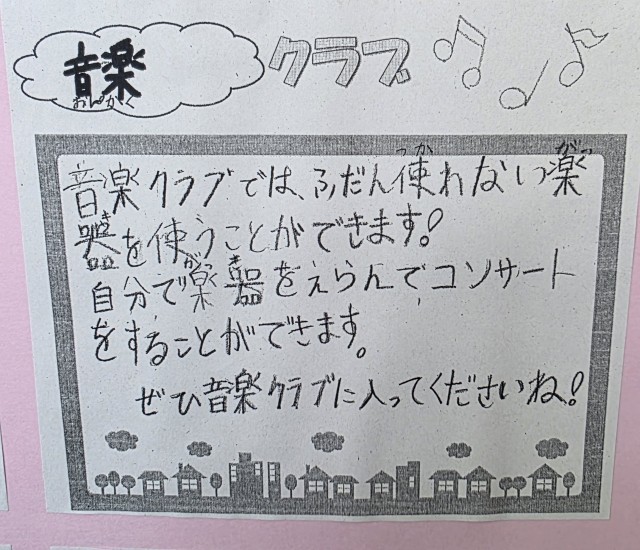 音楽 クラブ
おんがく
音楽クラブでは、ふだん使れない楽
つか がっ
器を使うことができます!
き
自分で楽器をえらんでコンサート
がっ き
をすることができます。
ぜひ音楽クラブに入ってくださいね!